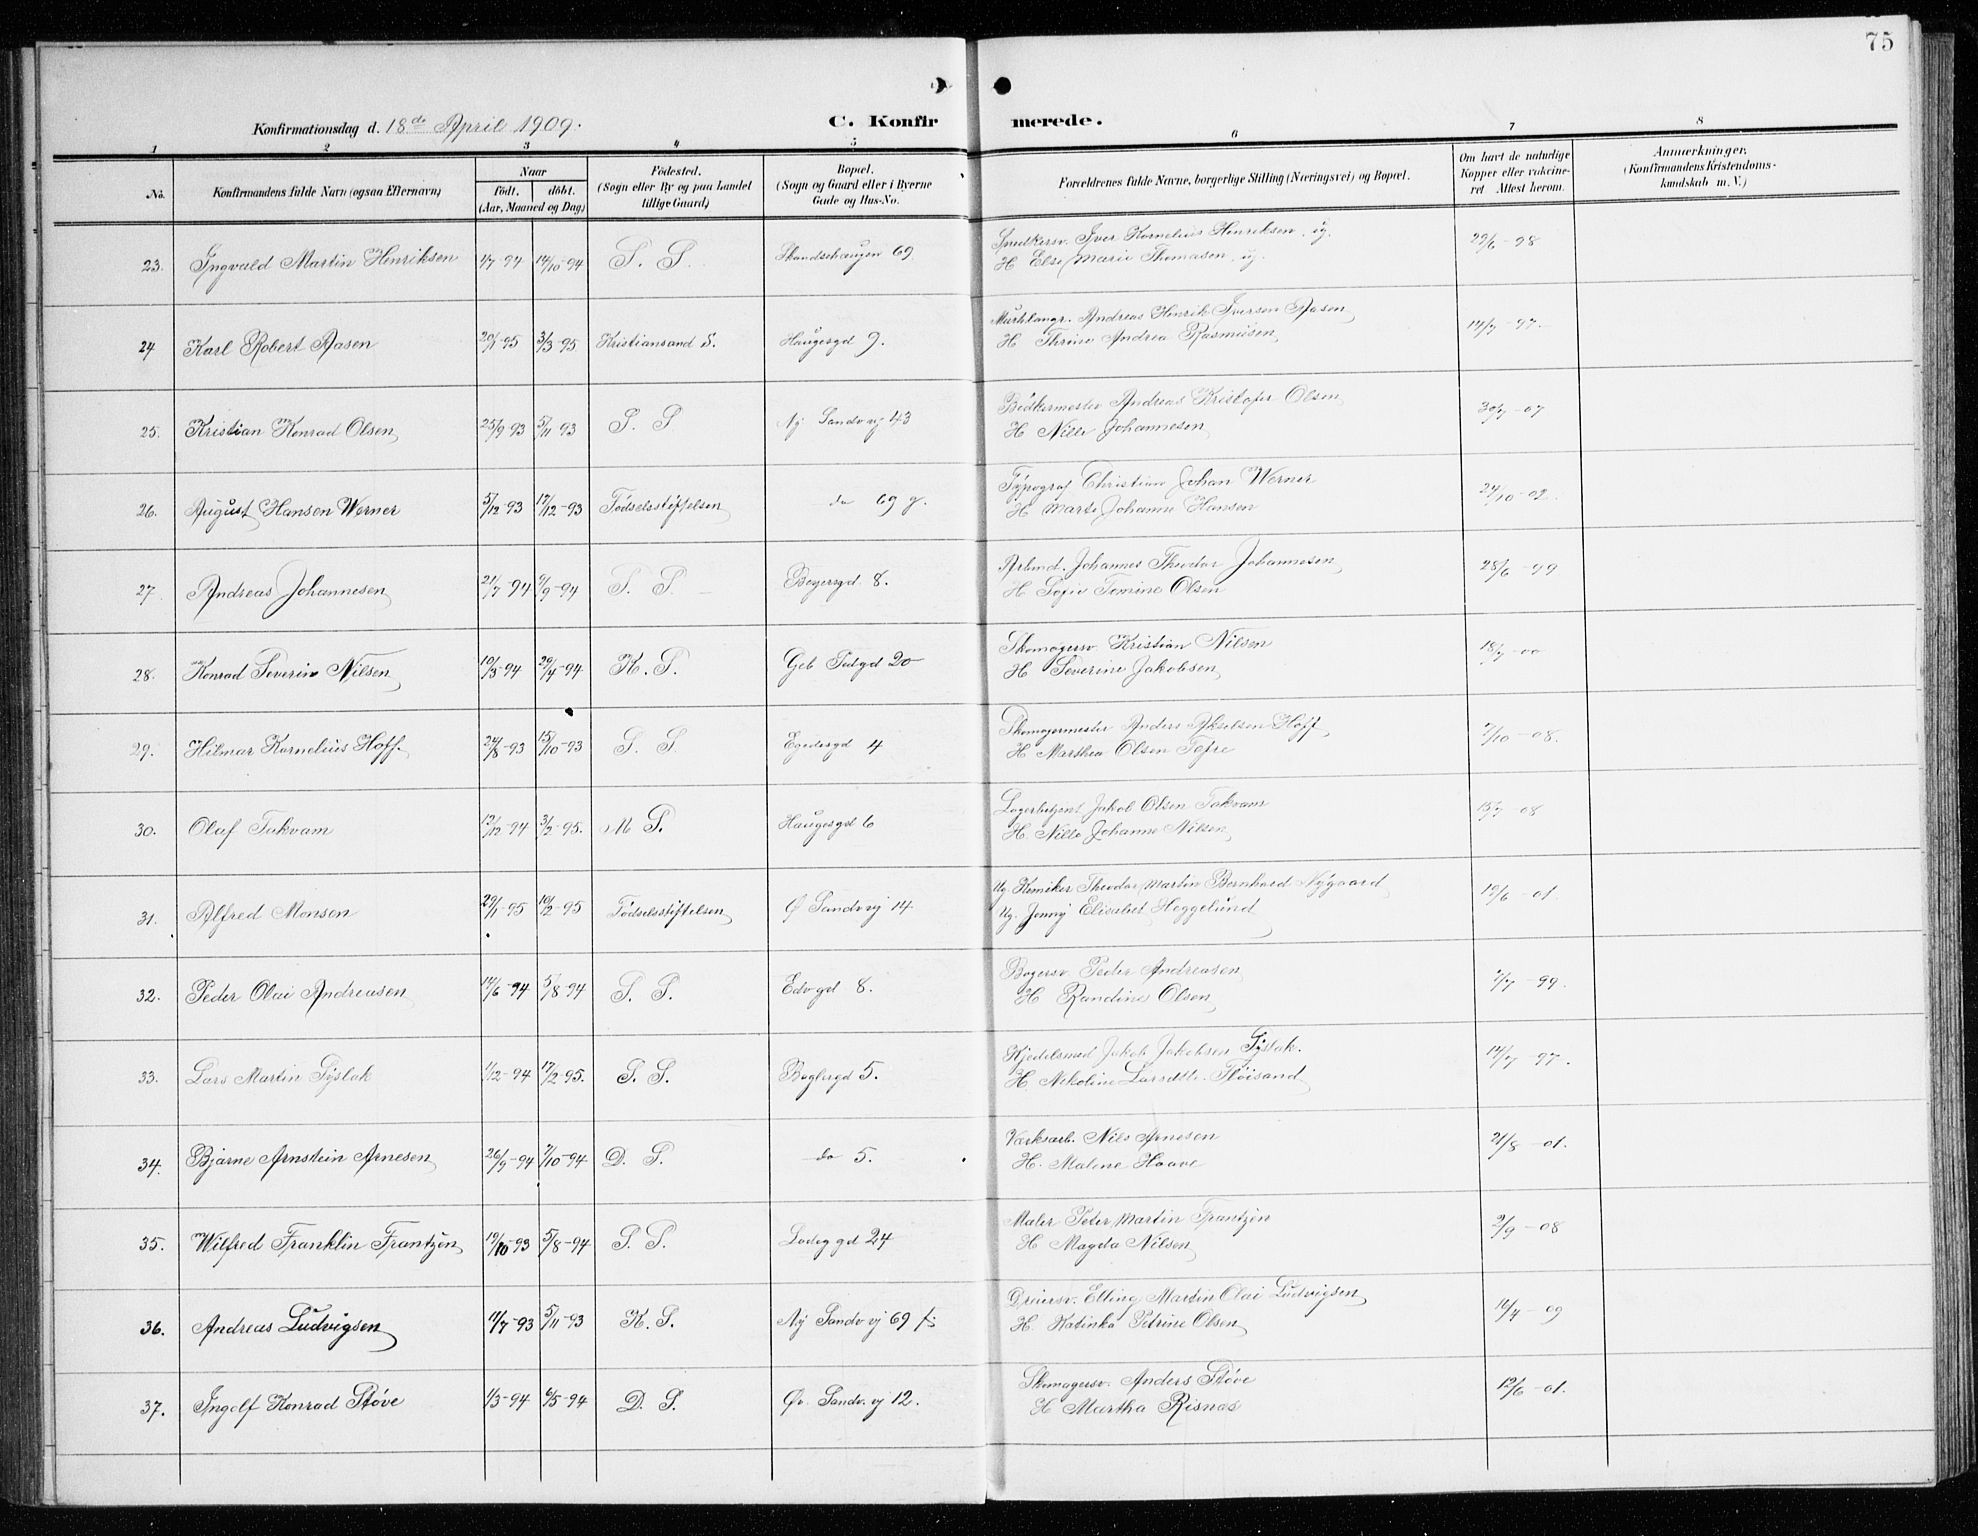 75
Konfirmationsdag d. 18de April 1909.
C. Konfirmerede.
1 2 3 4 5 6 7 8
No. Konfirmandens fulde Navn (ogsaa Efternavn)
Naar
født, døbt.
(Aar, Maaned og Dag)
Fødested.
(Sogn eller By og paa Landet
tillige Gaard)
Bopæl.
(Sogn og Gaard eller i Byerne
Gade og Hus-No.
Forældrenes fulde Navne, borgerlige Stilling (Næringsvei) og Bopæl.
Om havt de naturlige
Kopper eller vakcine-
ret Attest herom.
Anmærkninger.
(Konfirmandens Kristendoms-
kundskab m. V.)
Snedkersv. Iver Kornelius Henriksen, ug.
23. Ingvald Martin Henriksen 1/7-94 14/10-94 S. S. Skandsehaugen 69 29/6-98
H Else Marie Thomasen, ug.
Murhlangr. Andreas Henrik Iversen Aasen
24 Karl Robert Aasen 20/1-95 3/3-95 Kristiansand S. Haugesgd 9. 14/7-97.
H. Thrine Andrea Rasmusen
Bødkermester Andreas Kristofer Olsen
25. Kristian Konrad Olsen 25/9 93 5/11 93 S. S. Ny Sandv vj 43 30/7-07
H Nille Johannesen
Typograf Christian Johan Werner
26. August Hansen Werner 5/12-93 17/12-93 Fødselsstiftelsen do 69 g. 24/10-02.
H Marte Johanne Hansen
Arbmd. Johannes Theodor Johannesen
27. Andreas Johannesen 21/7-94 9/9-94 S. S. Bøgersgd 8. 28/6-99
H Sofie Tomine Olsen
Skomagersv Kristian Nilsen
28. Konrad Severin Nilsen 10/3-94 29/4-94 K. S. Geb Sedgd 20 18/7-00
H Severine Jakobsen
Skomagermester Anders Akselsen Hoff
29. Hilmar Kornelius Hoff. 24/8-93 15/10-93 S. S. Egedesgd 4 7/10-08.
H Marthea Olsen Tofre
Lagerbetjent Jakob Olsen Takvam
30. Olaf Takvam 12/12-94 3/2-95. M S. Haugesgd 6 13/7-08
H. Nille Johanne Nilsen
Ug. Kemiker Theodor Martin Bernhard Nygaard
31. Alfred Monsen 29/1-95 10/2-95 Fødselsstiftelsen Ø Sandv vj 14 19/6-01.
Ug. Jenny Elisabet Heggelund
Bøgersv. Peder Andreasen
32. Peder Olai Andreasen 14/6-94 5/8-94 S. S. Edv gd 8. 7/7-99.
H Randine Olsen
Kjedelsmed Jakob Jakobsen Tyslak.
33. Lars Martin Tyslak 1/12-94 17/2-95. S. S. Baglergd 5. 14/7-97.
H. Nikoline Larsdtr. Fløisand
Værksarb. Nils Arnesen
34. Bjarne Arnstein Arnesen 26/9-94 7/10-94 D. S. do 5. 21/8-01.
H. Malene Haave
Maler Peter Martin Frantzen
35. Wilfred Franklin Frantzen 19/10-93 5/8-94 S. S. Lodegd 24 2/9-08
H Magda Nilsen
Dreiersv. Elling Martin Olai Ludvigsen
36. Andreas Ludvigsen 11/7-93 5/11-93 K. S. Ny Sandv vj 69 f. 16/4-09
H. Katinka Petrine Olsen
Skomagersv. Anders Støve
37. Ingolf Konrad Støve 1/3-94 6/5-94 D. S. Øv. Sandv. vj 12. 12/6-01.
H Martha Risnes